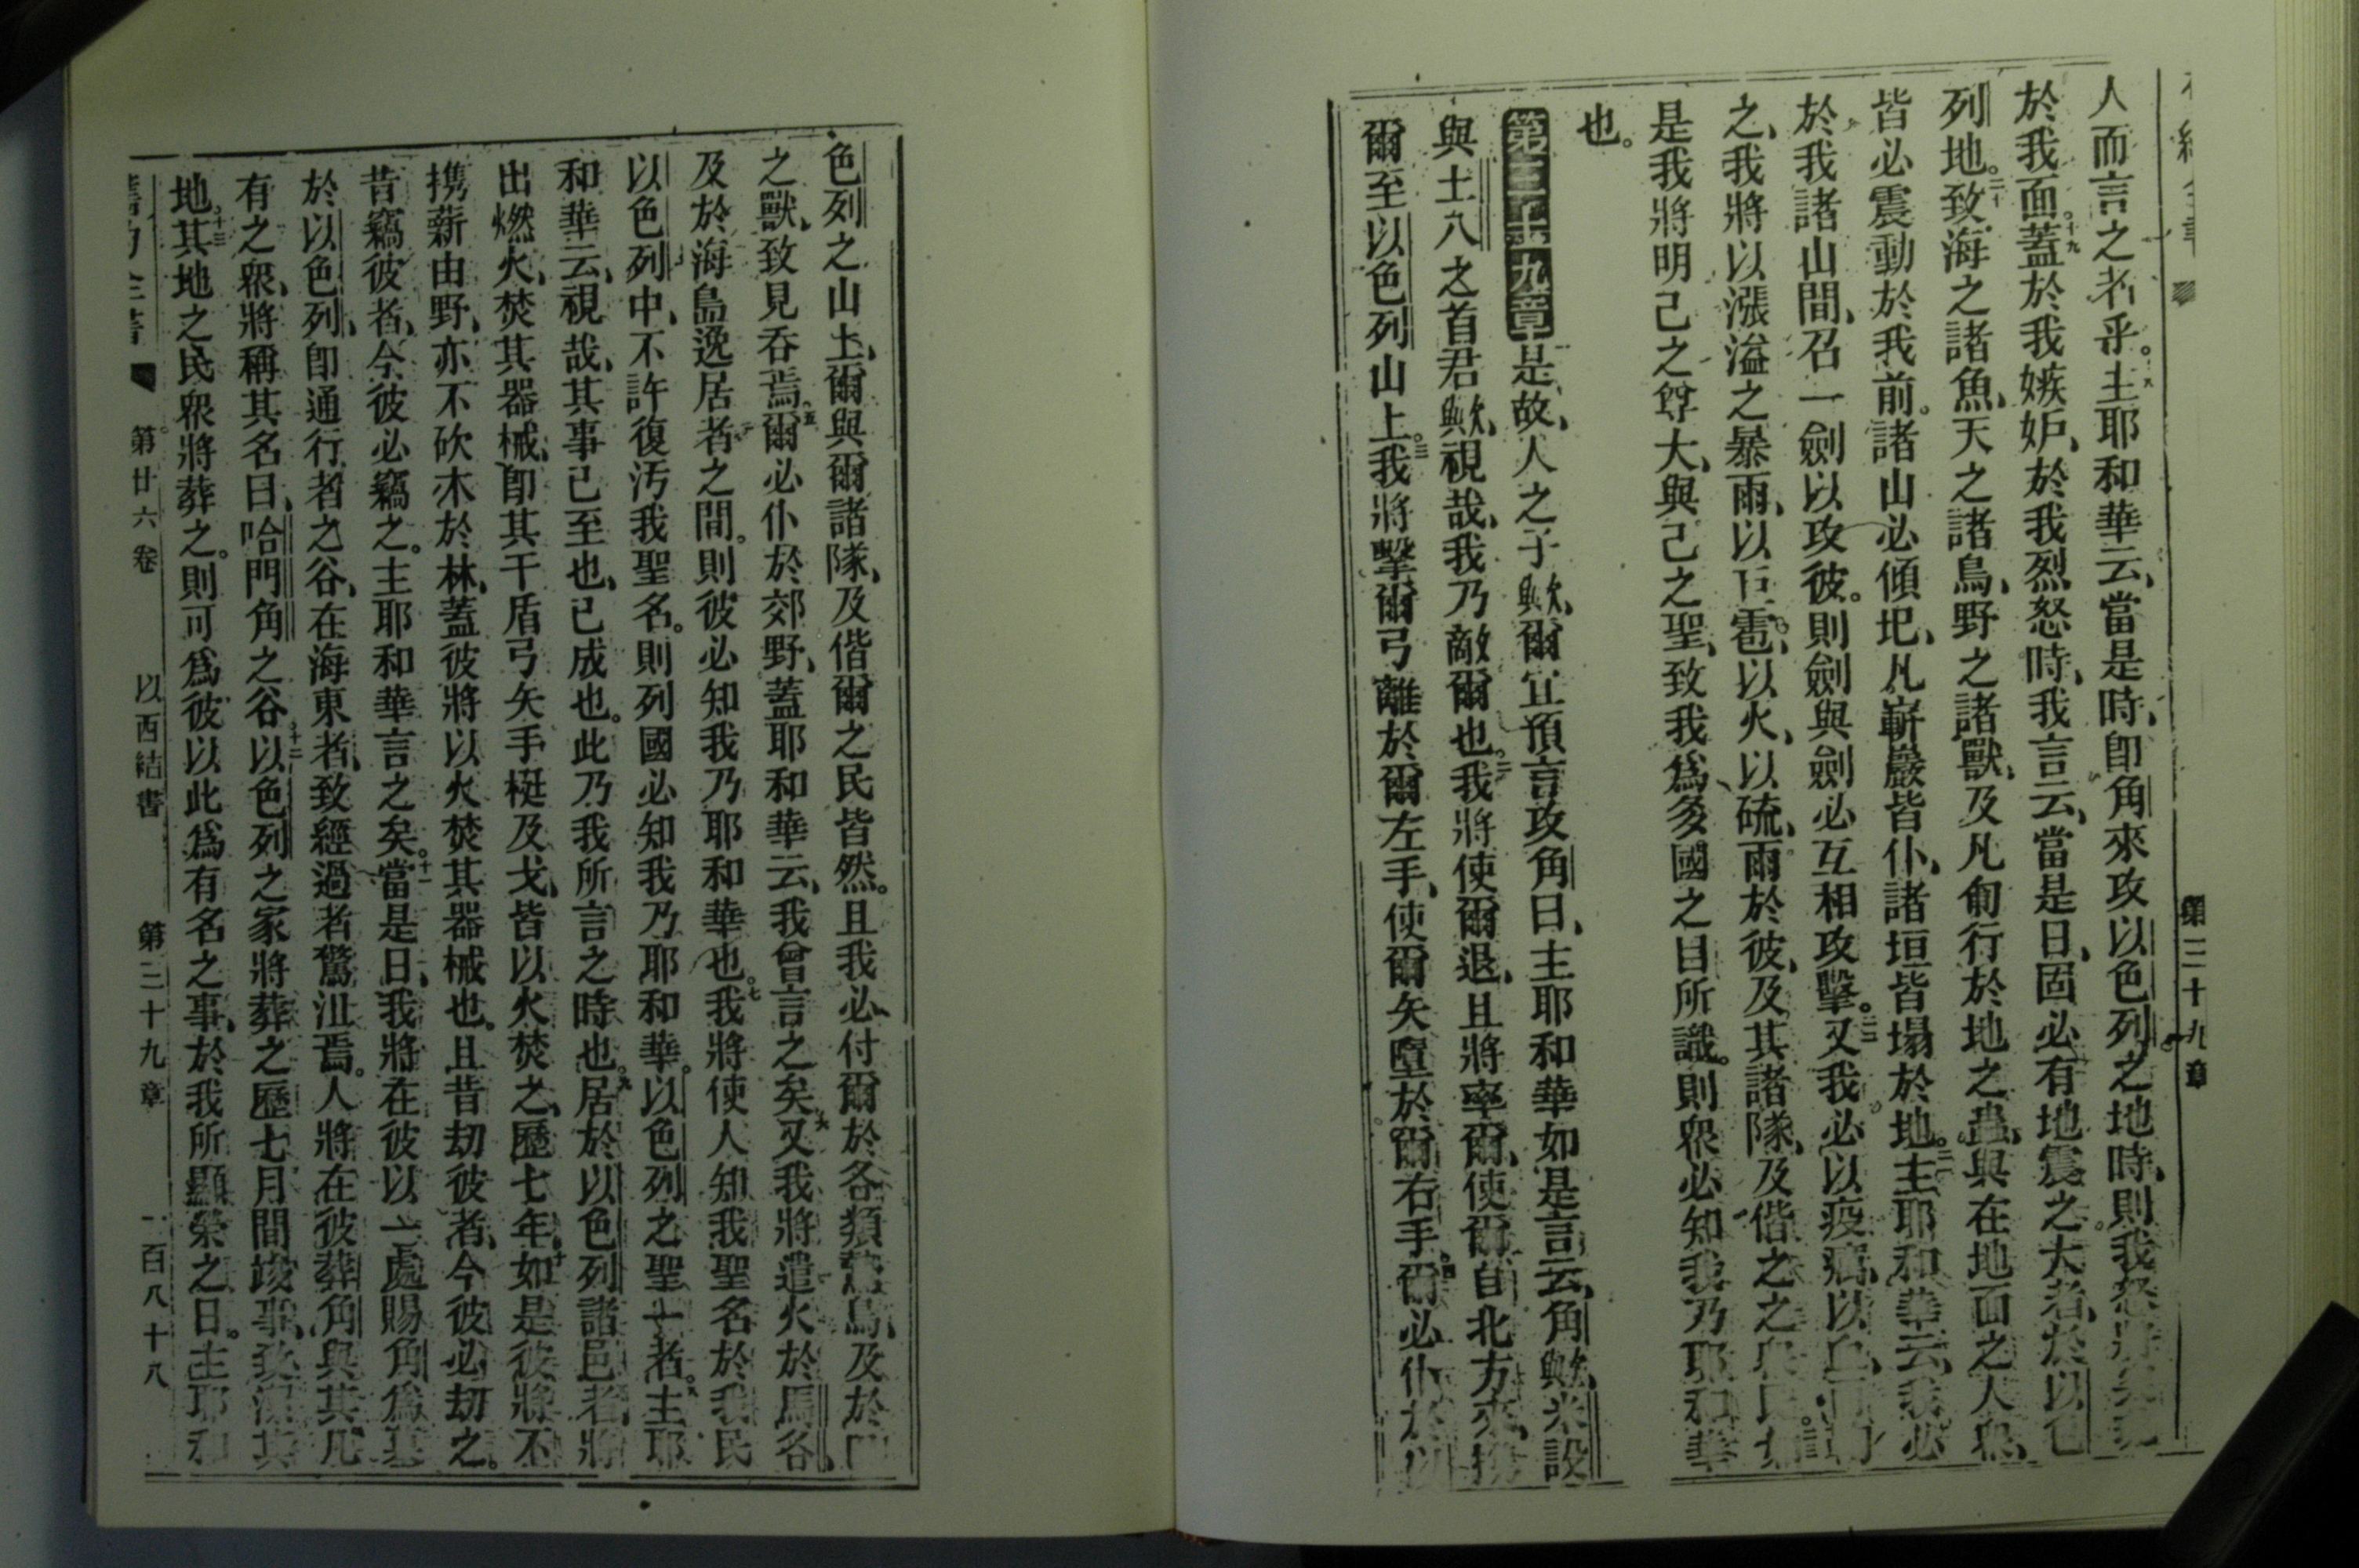 第三十九章
人而言之者乎。主耶和華云、當是時、即角來攻以色列之地時、則我怒將
於我面。十九蓋於我嫉妒、於我烈怒時、我言云、當是日、固必有地震之大者、於以色
列地。二十致海之諸魚、天之諸鳥、野之諸獸、及凡匍行於地之蟲、與在地面之人衆、
皆必震動於我前。諸山必傾圯、凡嶄巖皆仆、諸垣皆塌於地。主耶和華云、我必
於我諸山間、召一劍以攻彼。則劍與劍必互相攻擊。又我必以疫癘、以血
之、我將以漲溢之暴雨、以巨雹、以火、以硫、雨於彼、及其諸隊、及偕之之衆民。
是我將明己之尊大、與己之聖、致我爲多國之目所識。則衆必知我乃耶和華
也。
第三十九章是故、人之子歟、爾宜預言攻角曰、主耶和華如是言云、角歟、米設
與土八之首君歟、視哉、我乃敵爾也。二我將使爾退、且將率爾、使爾自北方來、
爾至以色列山上。三我將擊爾弓離於爾左手、使爾矢墮於爾右手。爾必仆於以
色列之山上、爾與爾諸隊、及偕爾之民皆然。且我必付爾於各類鷙鳥、及於
之獸、致見吞焉。五爾必仆於郊野、蓋耶和華云、我曾言之矣。六又我將遣火於馬各、
及於海島逸居者之間。則彼必知我乃耶和華也。七我將使人知我聖名於我民
以色列中、不許復汚我聖名。則列國必知我乃耶和華。以色列之聖一者。主耶
和華云、視哉、其事已至也、已成也。此乃我所言之時也。九居於以色列諸邑者、將
出燃火、焚其器械、即其干盾弓矢手梃及戈、皆以火焚之、歷七年。十如是彼將不
携薪由野、亦不砍木於林、蓋彼將以火焚其器械也。且昔刧彼者、今彼必刧之。
昔竊彼者、今彼必竊之。主耶和華言之矣。十一當是日、我將在彼以一處賜角爲墓
於以色列、即通行者之谷、在海東者、致經過者驚沮焉。人將在彼葬角與其凡
有之衆、將稱其名曰、哈門角之谷。十二以色列之家將葬之、歷七月間竣事、致潔其
地。十三其地之民衆將葬之。則可爲彼以此爲有名之事、於我所顯榮之日。主耶和
第廿六卷 以西結書 第三十九章 一百八十八